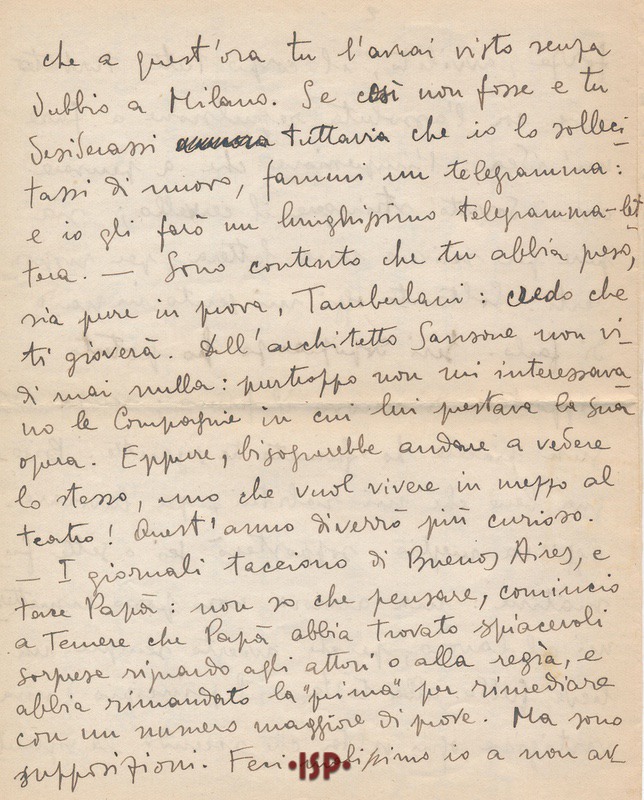 che a quest'ora tu l'avrai visto senza
dubbio a Milano. Se così non fosse e tu
desiderassi tuttavia che io lo solleci-
tassi di nuovo, fammi un telegramma:
e io gli farò un lunghissimo telegramma-let
tera. — Sono contento che tu abbia preso,
sia pure in prova, Tamberlani: credo che
ti gioverà. Dell'architetto Sansone non vi-
di mai nulla: purtroppo non mi interessava
no le Compagnie in cui lui prestava la sua
opera. Eppure, bisognerebbe andare a vedere
lo stesso, uno che vuol vivere in mezzo al
teatro! Quest'anno diverrò più curioso.
— I giornali tacciono di Buenos Aires, e
tace Papà: non so che pensare, comincio
a temere che Papà abbia trovato spiacevoli
sorprese riguardo agli attori o alla regìa, e
abbia rimandato la "prima" per rimediare
con un numero maggiore di prove. Ma sono
supposizioni. Feci malissimo io a non av
•ISP•